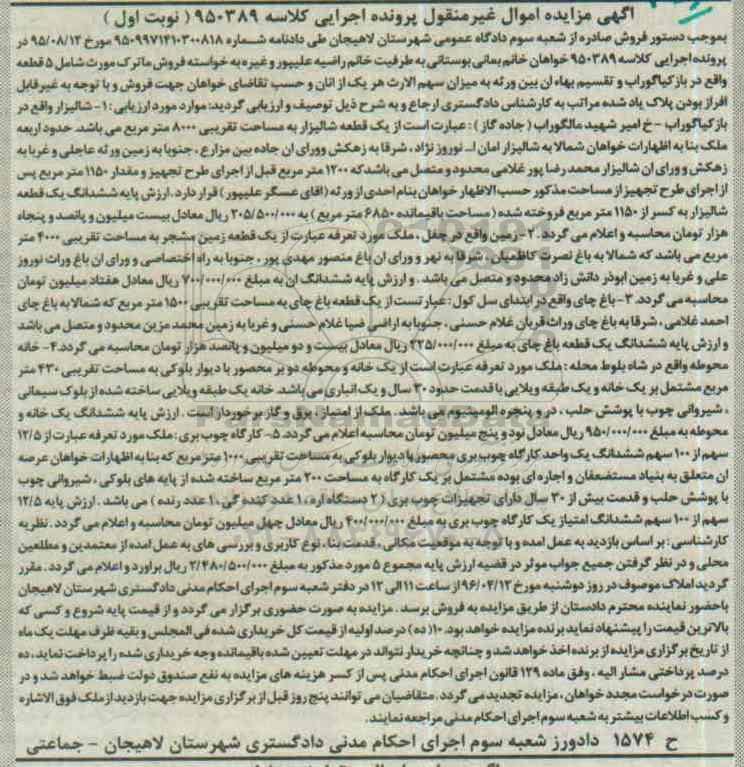 آگهی مزایده اموال غیرمنقول پرونده اجرایی کلاسه ۹۵۰۳۸۹ ( نوبت اول )
بموجب دستور فروش صادره از شعبه سوم دادگاه عمومی شهرستان لاهیجان طی دادنامه شماره ۹۵۰۹۹۷۱۴۱۰۳۰۰۸۱۸ مورخ ۹۵/۰۸/۱۲ در
پرونده اجرایی کلاسه ۹۵۰۳۸۹ خواهان خانم یمانی بوستانی به طرفیت خانم راضیه علیپور و غیره به خواسته فروش ماترک مورث شامل ۵ قطعه
واقع در بازکیاگوراب و تقسیم بهاء ان بین ورثه به میزان سهم الارث هر یک از انان و حسب تقاضای خواهان جهت فروش و با توجه به غیرقابل
افراز بودن پلاک یاد شده مراتب به کارشناس دادگستری ارجاع و به شرح ذیل توصیف و ارزیابی گردید: موارد مورد ارزیابی : ۱- شالیزار واقع در
بازکیاگوراب - خ امیر شهید مالگوراب ( جاده گاز ) : عبارت است از یک قطعه شالیزار به مساحت تقریبی ۸۰۰۰ متر مربع می باشد. حدود اربعه
ملک بنا به اظهارات خواهان شمالا به شالیزار امان ا... نوروز نژاد ، شرقا به زهکش وورای ان جاده بین مزارع ، جنوبا به زمین ورثه عاجلی و غربا به
زهکش و ورای ان شالیزار محمد رضا پور غلامی محدود و متصل می باشد که ۱۲۰۰ متر مربع قبل از اجرای طرح تجهیز و مقدار ۱۱۵۰ متر مربع پس
از اجرای طرح تجهیز از مساحت مذکور حسب الاظهار خواهان بنام احدی از ورثه ( اقای عسگر علیپور ) قرار دارد . ارزش پایه ششدانگ یک قطعه
شالیزار به کسر از ۱۱۵۰ متر مربع فروخته شده ( مساحت باقیمانده ۶۸۵۰ متر مربع ) به ۲۰۵/۵۰۰/۰۰۰ ریال معادل بیست میلیون و پانصد و پنجاه
هزار تومان محاسبه و اعلام می گردد . ۲- زمین واقع در چفل ، ملک مورد تعرفه عبارت از یک قطعه زمین مشجر به مساحت تقریبی ۴۰۰۰ متر
مربع می باشد که شمالا به باغ نصرت کاظمیان ، شرقا به نهر و ورای ان باغ منصور مهدی پور ، جنوبا به راه اختصاصی و ورای ان باغ وراث نوروز
علی و غربا به زمین ابوذر دانش زاد محدود و متصل می باشد . و ارزش پایه ششدانگ ان به مبلغ ۷۰۰/۰۰۰/۰۰۰ ریال معادل هفتاد میلیون تومان
محاسبه می گردد. ۳- باغ چای واقع در ابتدای سل کول : عبارتست از یک قطعه باغ چای به مساحت تقریبی ۱۵۰۰ متر مربع که شمالا به باغ چای
احمد غلامی ، شرقا به باغ چای وراث قربان غلام حسنی ، جنوبا به اراضی ضیا غلام حسنی و غربا به زمین محمد مزین محدود و متصل می باشد
و ارزش پایه ششدانگ یک قطعه باغ چای به مبلغ ۲۲۵/۰۰۰/۰۰۰ ریال معادل بیست و دو میلیون و پانصد هزار تومان محاسبه می گردد. ۴- خانه
محوطه واقع در شاه بلوط محله : ملک مورد تعرفه عبارت است از یک خانه و محوطه دو بر محصور با دیوار بلوکی به مساحت تقریبی ۴۳۰ متر
مربع مشتمل بر یک خانه و یک طبقه ویلایی با قدمت حدود ۳۰ سال و یک انباری می باشد. خانه یک طبقه ویلایی ساخته شده از بلوک سیمانی
، شیروانی چوب با پوشش حلب ، در و پنجره الومینیوم می باشد . ملک از امتیاز ، برق و گاز برخوردار است . ارزش پایه ششدانگ یک خانه و
محوطه به مبلغ ۹۵۰/۰۰۰/۰۰۰ ریال معادل نود و پنج میلیون تومان محاسبه اعلام می گردد. ۵- کارگاه چوب بری : ملک مورد تعرفه عبارت از ۱۲/۵
سهم از ۱۰۰ سهم ششدانگ یک واحد کارگاه چوب بری محصور با دیوار بلوکی به مساحت تقریبی ۱۰۰۰ متر مربع که بنا به اظهارات خواهان عرصه
ان متعلق به بنیاد مستضعفان و اجاره ای بوده مشتمل بر یک کارگاه به مساحت ۲۰۰ متر مربع ساخته شده از پایه های بلوکی ، شیروانی چوب
با پوشش حلب و قدمت بیش از ۳۰ سال دارای تجهیزات چوب بری ( ۲ دستگاه اره ، ۱ عدد کننده گی ، ۱ عدد رنده ) می باشد . ارزش پایه ۱۲/۵
سهم از ۱۰۰ سهم ششدانگ امتیاز یک کارگاه چوب بری به مبلغ ۴۰۰/۰۰۰/۰۰۰ ریال معادل چهل میلیون تومان محاسبه و اعلام می گردد . نظریه
کارشناسی : بر اساس بازدید به عمل امده و با توجه به موقعیت مکانی ، قدمت بنا ، نوع کاربری و بررسی های به عمل امده از معتمدین و مطلعین
محلی و در نظر گرفتن جمیع جواب موثر در قضیه ارزش پایه مجموع ۵ مورد مذکور به مبلغ ۲/۴۸۰/۵۰۰/۰۰۰ ریال براورد و اعلام می گردد . مقرر
گردید املاک موصوف در روز دوشنبه مورخ ۹۶/۰۴/۱۲ از ساعت ۱۱ الی ۱۲ در دفتر شعبه سوم اجرای احکام مدنی دادگستری شهرستان لاهیجان
باحضور نماینده محترم دادستان از طریق مزایده به فروش برسد . مزایده به صورت حضوری برگزار می گردد و از قیمت پایه شروع و کسی که
بالاترین قیمت را پیشنهاد نماید برنده مزایده خواهد بود. ۱۰( ده ) درصد اولیه از قیمت کل خریداری شده فی المجلس و بقیه ظرف مهلت یک ماه
از تاریخ برگزاری مزایده از برنده اخذ خواهد شد و چنانچه خریدار نتواند در مهلت تعیین شده باقیمانده وجه خریداری شده را پرداخت نماید ، ده
درصد پرداختی مشار الیه ، وفق ماده ۱۲۹ قانون اجرای احکام مدنی پس از کسر هزینه های مزایده به نفع صندوق دولت ضبط خواهد شد و در
صورت درخواست مجدد خواهان ، مزایده تجدید می گردد . متقاضیان می توانند پنج روز قبل از برگزاری مزایده جهت بازدید از ملک فوق الاشاره
و کسب اطلاعات بیشتر به شعبه سوم اجرای احکام مدنی مراجعه نمایند.
ح ۱۵۷۴ دادورز شعبه سوم اجرای احکام مدنی دادگستری شهرستان لاهیجان - جماعتی